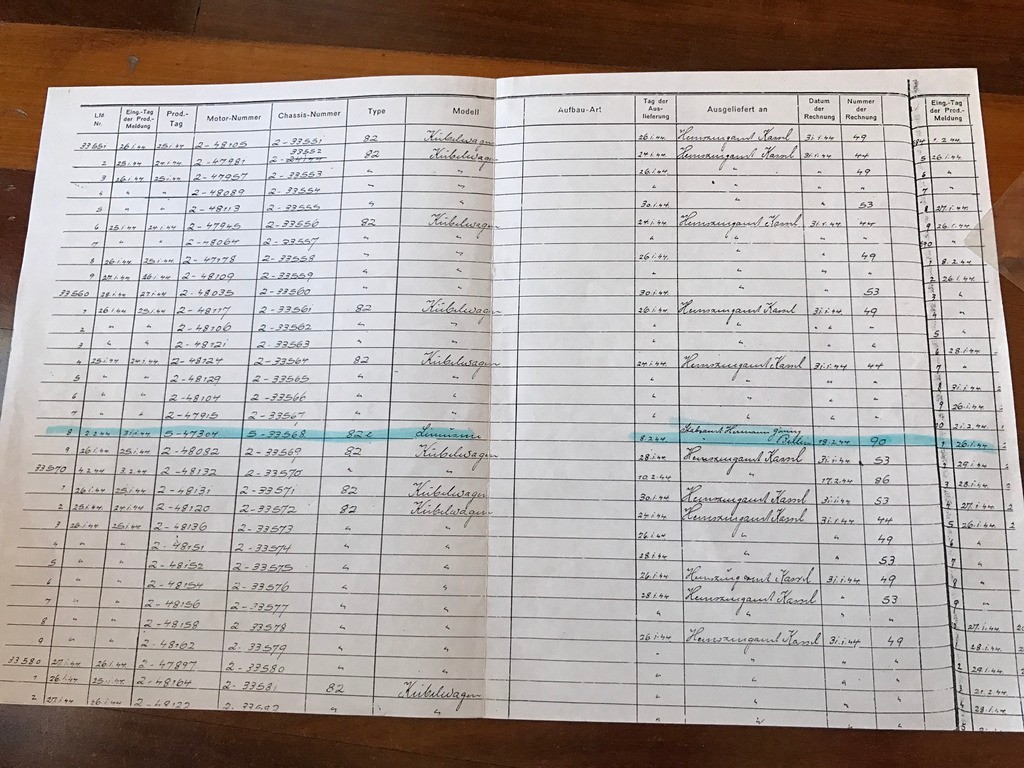 LM Nr. Eing.-Tag der Prod.-Meldung Prod.-Tag Motor-Nummer Chassis-Nummer Type Modell Aufbau-Art Tag der Aus-lieferung Ausgeliefert an Datum der Rechnung Nummer der Rechnung Eing.-Tag der Prod.-Meldung
33551 26.1.44 25.1.44 2-48105 2-33551 82 Kübelwagen 26.1.44 Heimzugamt Kassel 31.1.44 49 1.2.44
2 25.1.44 24.1.44 2-47981 2-33552 82 Kübelwagen 24.1.44 Heimzugamt Kassel 31.1.44 44 5 26.1.44
3 26.1.44 25.1.44 2-47957 2-33553 " " 26.1.44 " " 49 6 "
4 " " 2-48089 2-33554 " " " " " " 7 "
5 " " 2-48113 2-33555 " " 30.1.44 " " 53 8 27.1.44
6 25.1.44 24.1.44 2-47945 2-33556 82 Kübelwagen 24.1.44 Heimzugamt Kassel 31.1.44 44 9 26.1.44
7 " " 2-48064 2-33557 " " " " " "
8 26.1.44 25.1.44 2-47178 2-33558 " " 26.1.44 " " 49 1 8.2.44
9 27.1.44 26.1.44 2-48109 2-33559 " " " " " " 2 26.1.44
33560 28.1.44 27.1.44 2-48035 2-33560 " " 30.1.44 " " 53 3 "
1 26.1.44 25.1.44 2-48117 2-33561 82 Kübelwagen 26.1.44 Heimzugamt Kassel 31.1.44 49
2 " " 2-48106 2-33562 " " " " " " 5
3 " " 2-48121 2-33563 " " " " " " 6 28.1.44
4 25.1.44 24.1.44 2-48124 2-33564 82 Kübelwagen 24.1.44 Heimzugamt Kassel 31.1.44 44 7 "
5 " " 2-48129 2-33565 " " " " " " 8 31.1.44
6 " " 2-48104 2-33566 " " " " " " 9 26.1.44
7 " " 2-47915 2-33567 " " " " " " 21.2.44
8 2.2.44 31.1.44 5-47304 5-33568 82e Limusine 8.2.44 Stabsamt Hermann Göring Berlin 18.2.44 90 1 26.1.44
9 26.1.44 25.1.44 2-48082 2-33569 82 Kübelwagen 28.1.44 Heimzugamt Kassel 31.1.44 53 2 29.1.44
33570 4.2.44 3.2.44 2-48132 2-33570 " " 10.2.44 " 17.2.44 86 3 28.1.44
1 26.1.44 25.1.44 2-48131 2-33571 82 Kübelwagen 30.1.44 Heimzugamt Kassel 31.1.44 53 4 27.1.44
2 25.1.44 24.1.44 2-48120 2-33572 82 Kübelwagen 24.1.44 Heimzugamt Kassel 31.1.44 44 5 26.1.44
3 26.1.44 25.1.44 2-48136 2-33573 " " 26.1.44 " " 49 6 "
4 " " 2-48151 2-33574 " " 28.1.44 " " 53 7 "
5 " " 2-48152 2-33575 " " 26.1.44 Heimzugamt Kassel 31.1.44 49 8 "
6 " " 2-48154 2-33576 " " 28.1.44 Heimzugamt Kassel " 53 9 "
7 " " 2-48156 2-33577 " " " " " " 27.1.44
8 " " 2-48158 2-33578 " " 26.1.44 Heimzugamt Kassel 31.1.44 49 1 28.1.44
9 " " 2-48162 2-33579 " " " " " " 2 29.1.44
33580 27.1.44 26.1.44 2-47897 2-33580 " " " " " " 3 21.2.44
1 26.1.44 25.1.44 2-48164 2-33581 82 Kübelwagen " " " " 4 28.1.44
2 27.1.44 26.1.44 " " " " 5